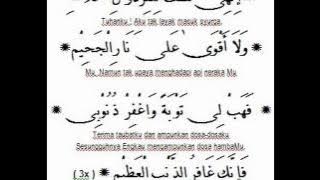 Tuhanku ! Aku tak layak masuk syurga
وَلَا أَقْوَى عَلَى نَارِ الْجَحِيْمِ
Mu. Namun tak upaya menghadapi api neraka Mu
فَهَبْ لِي تَوْبَةً وَاغْفِرْ ذُنُوْبِي
Terima taubatku dan ampunkan dosa-dosaku
Sesungguhnya Engkau mengampunkan dosa hambaMu
فَإِنَّكَ غَافِرُ الذَّنْبِ الْعَظِيْمِ (3x)